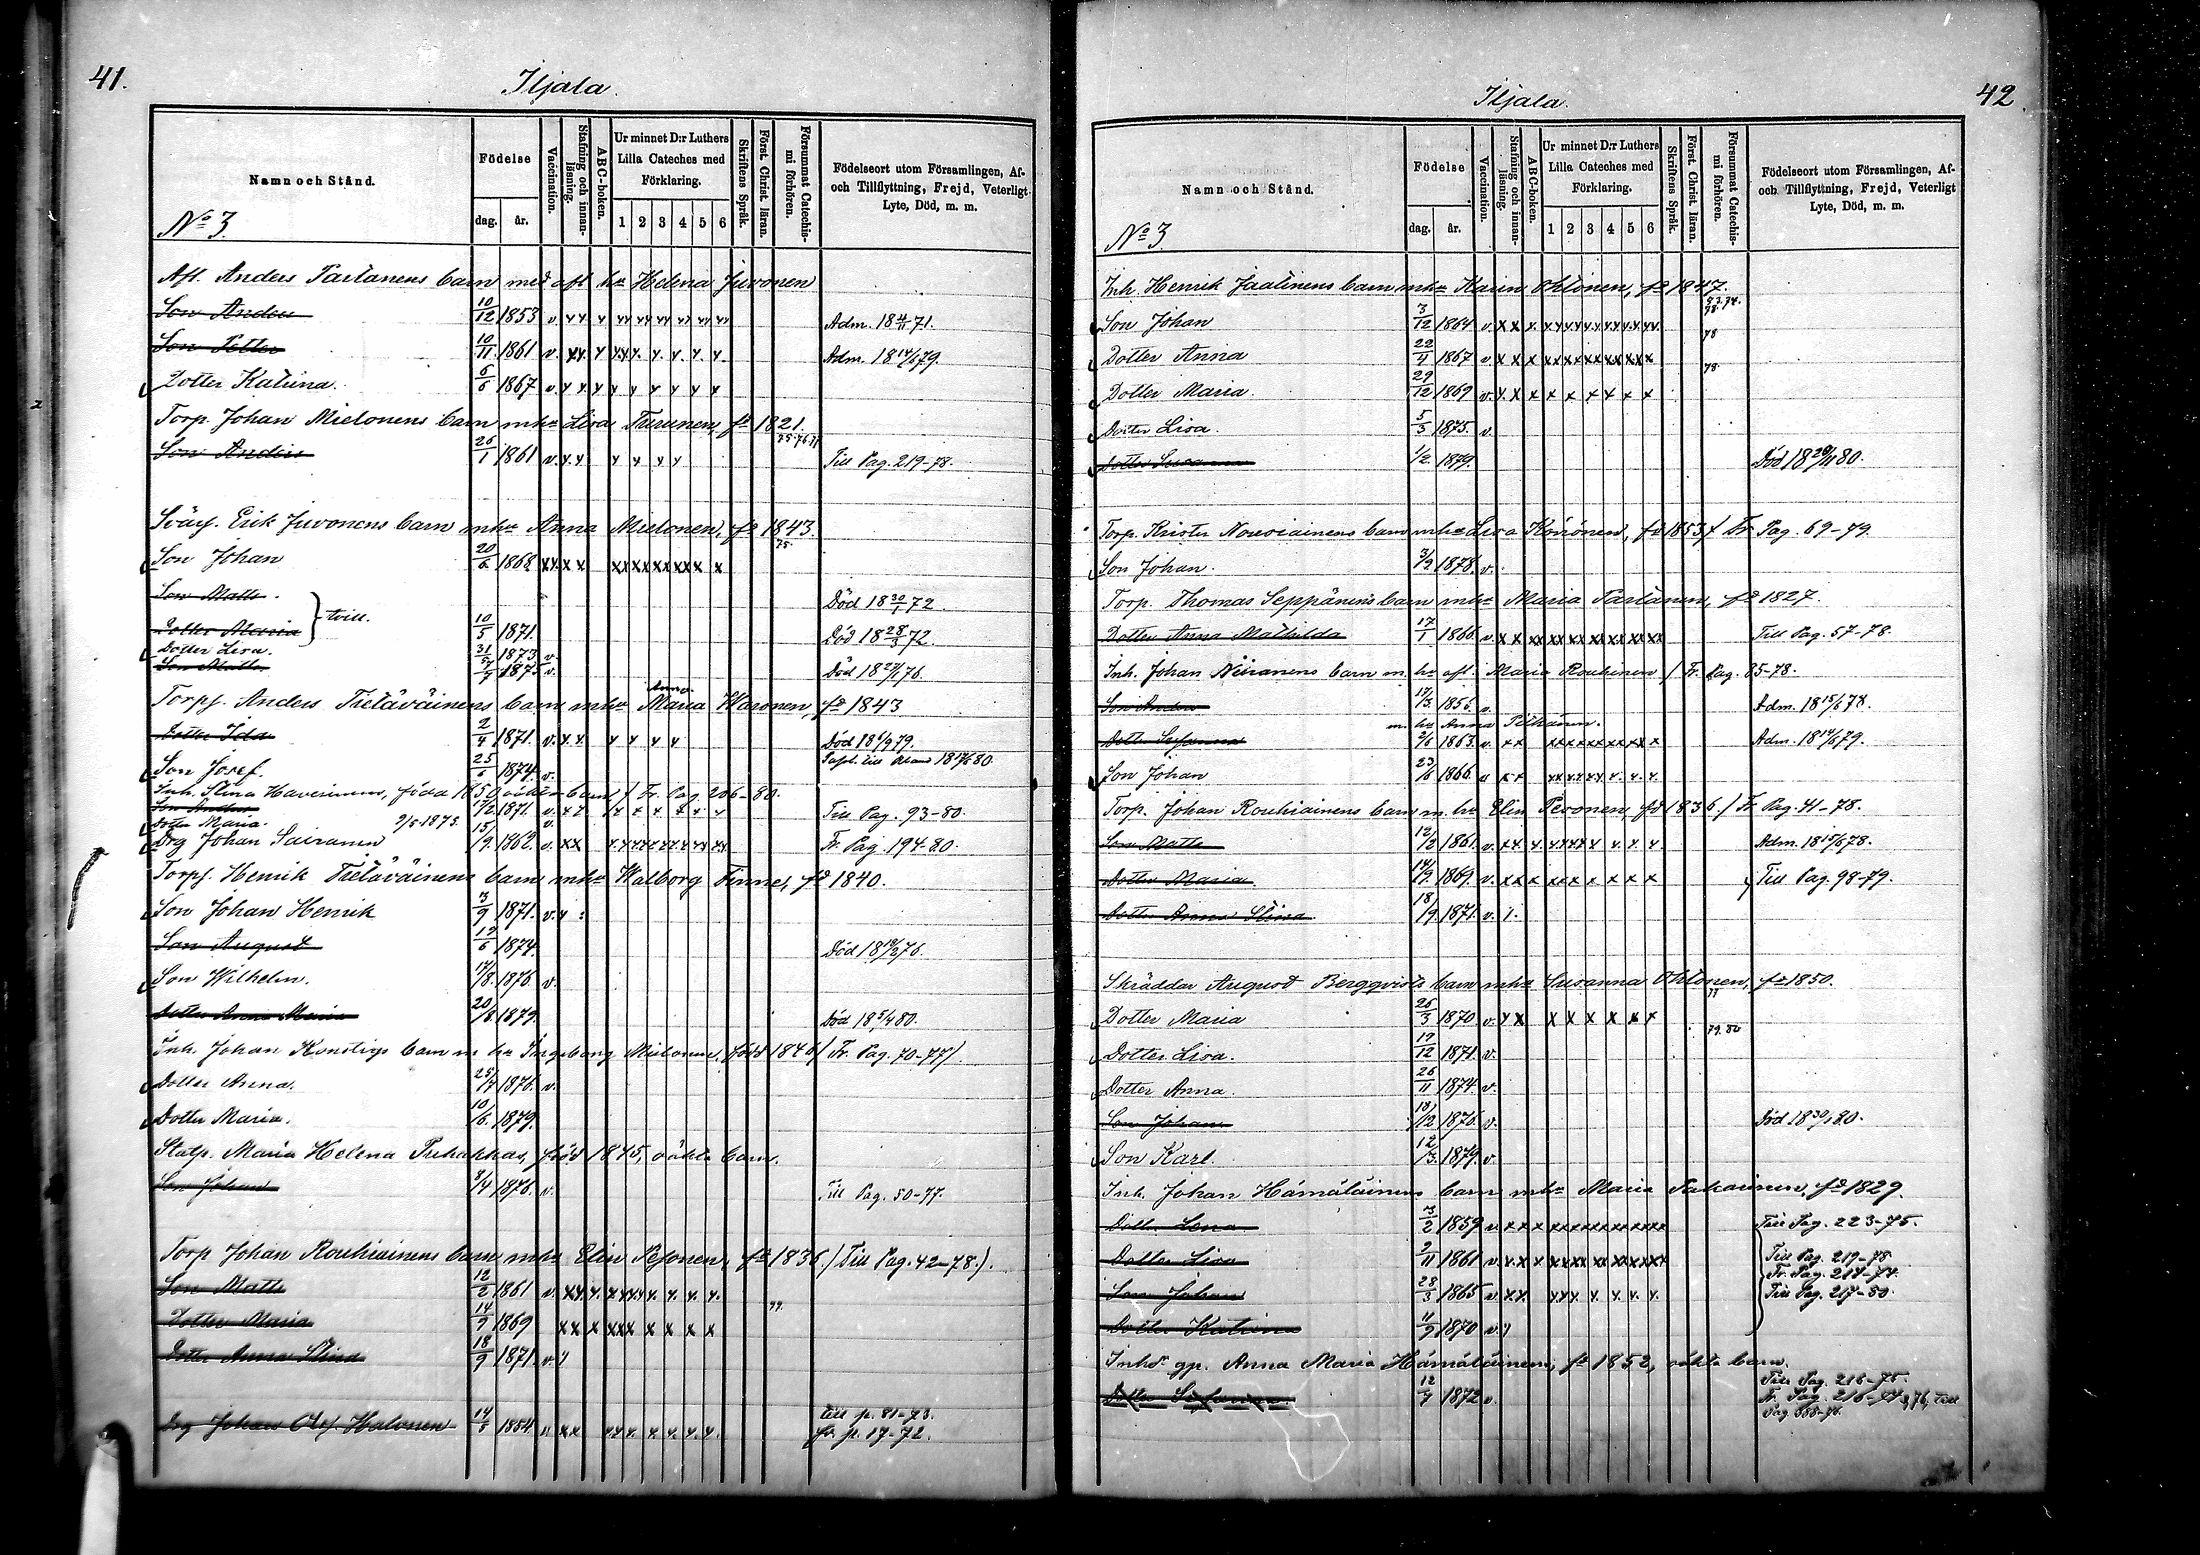 41.
Iljala.
Namn och Stånd.
Födelse
dag.
år.
Vaccination.
Stafning och innan-läsning.
ABC-boken.
Ur minnet D:r Luthers
Lilla Cateches med
Förklaring.
1 2 3 4 5 6
Skriftens Språk.
Först. Christ. läran.
Försummat Catechis-mi förhören.
Födelseort utom Församlingen, Af-
och Tillflyttning, Frejd, Veterligt
Lyte, Död, m. m.
No 3.
Afl. Anders Partanens barn med afl. h:u Helena Juvonen
Son Anders 10/12 1853 v. Adm. 71.
Son Petter 10/11 1861 v. Adm. 18 14/6 79.
Dotter Katrina. 6/6 1867 v.
Torp. Johan Mielonens barn m h:u Lisa Turunen, fd 1821.
Son Anders 26/1 1861 v. Till Pag. 219-78.
Svåg. Erik Juvonens barn m h:u Anna Mielonen, fd 1843.
75.
Son Johan 20/6 1868
Son Matts. Död 18 30/1 72
Dotter Maria } tvill. 10/5 1871. Död 18 28/3 72
Dotter Lisa. 31/5 1873 v.
Son Matts 1875 v. Död 76.
Anna
Torpf. Anders Tietäväinens barn m h:u Maria Waronen, fd 1843
Dotter Ida 2/4 1871. v. Död 79.
Son Josef. 25/6 1874. v.
Inh. Stina Haverinens, född 1850, oäkta barn / Fr. Pag. 206-80.
Son Anders 17/2 1871. v. Till Pag. 93-80.
Dotter Maria. 2/5 1873. v.
Drg Johan Sairanen 15/9 1862. v. Fr. Pag. 194-80.
Torpf. Henrik Tietäväinens barn m h:u Walborg Tinnes, fd 1840.
Son Johan Henrik 3/9 1871. v.
Son August 12/6 1874. Död 76.
Son Wilhelm. 17/8 1876. v.
Dotter Anna Maria 20/8 1879. Död 18 5/4 80.
Inh. Johan Konstigs barn m h:u Ingeborg Mielonen, född 1846 / Fr. Pag. 70-77).
Dotter Anna. 25/7 1876. v.
Dotter Maria. 10/6 1879.
Statp. Maria Helena Puhakkas, född 1845, oäkta barn.
Son Johan 8/4 1876. v. Till Pag. 50-77.
Torp Johan Rouhiainens barn m h:u Elin Pesonen, fd 1836. / Till Pag. 42-78.)
Son Matts 12/2 1861 v.
Dotter Maria 14/9 1869
Dotter Anna Stina 18/9 1871. v.
Drg Johan Ol:s. Halonen 14/5 1854. Till p. 81-73.
fr. p. 17-72.
42.
Iljala.
Namn och Stånd.
Födelse
dag.
år.
Vaccination.
Stafning och innan-läsning.
ABC-boken.
Ur minnet D:r Luthers
Lilla Cateches med
Förklaring.
1 2 3 4 5 6
Skriftens Språk.
Först. Christ. läran.
Försummat Catechis-mi förhören.
Födelseort utom Församlingen, Af-
och Tillflyttning, Frejd, Veterligt
Lyte, Död, m. m.
No 3
Inh. Henrik Jaatinens barn m h:u Karin Ohtonen, fd 1847.
Son Johan 3/12 1864 v.
Dotter Anna 22/4 1867 v. 78
Dotter Maria 29/12 1869 v. 78.
Dotter Lisa. 5/3 1875. v.
Dotter Susanna 1/2 1879. Död 80.
Torp. Krister Nousiainens barn m h:u Lisa Könönen, fd 1853 / Fr Pag. 69-79.
Son Johan. 3/2 1878. v.
Torp. Thomas Seppänens barn m h:u Maria Partanen, fd 1827.
Dotter Anna Mathilda 17/1 1866 v. Till Pag. 57-78.
Inh. Johan Niiranens barn m. h:u afl. Maria Rouhinen / Fr. Pag. 85-78.
Son Anders 17/3 1856. v. Adm. 18 15/6 78.
m. h:u Anna
Dott. Susanna 2/6 1863. v. Adm. 18 14/6 79.
Son Johan 23/6 1866
Torp. Johan Rouhiainens barn m. h:u Elin Pesonen, fd 1836. / Fr Pag. 41-78.
Son Matts 12/2 1861. v. Adm. 18 15/6 78.
Dotter Maria. 14/9 1869. v. Till Pag. 98-79.
Dotter Anna Stina 18/9 1871. v.
Skräddar August Bergqvists barn m h:u Susanna Ohtonen, fd 1850.
Dotter Maria 26/3 1870 v.
79. 80
Dotter Lisa. 19/12 1871. v.
Dotter Anna. 26/11 1874. v.
Son Johan 18/12 1876. v. Död 80.
Son Karl. 12/3 1879. v.
Inh. Johan Hämäläinens barn m h:u Maria Pakarinen, fd 1829.
Dott. Lena 3/2 1859 v. Till Pag. 223-75.
Dotter Lisa 2/11 1861 v. Till Pag. 219-78
Fr. Pag. 214-74.
Son Johan 28/3 1865 v. Till Pag. 217-80.
Dotter Katrina 11/9 1870 v.
Inhs gp. Anna Maria Hämäläinens, fd 1852, oäkta barn.
Till Pag. 218-75
Dotter 12/7 1872 v. Fr. Pag. 76, till
Pag